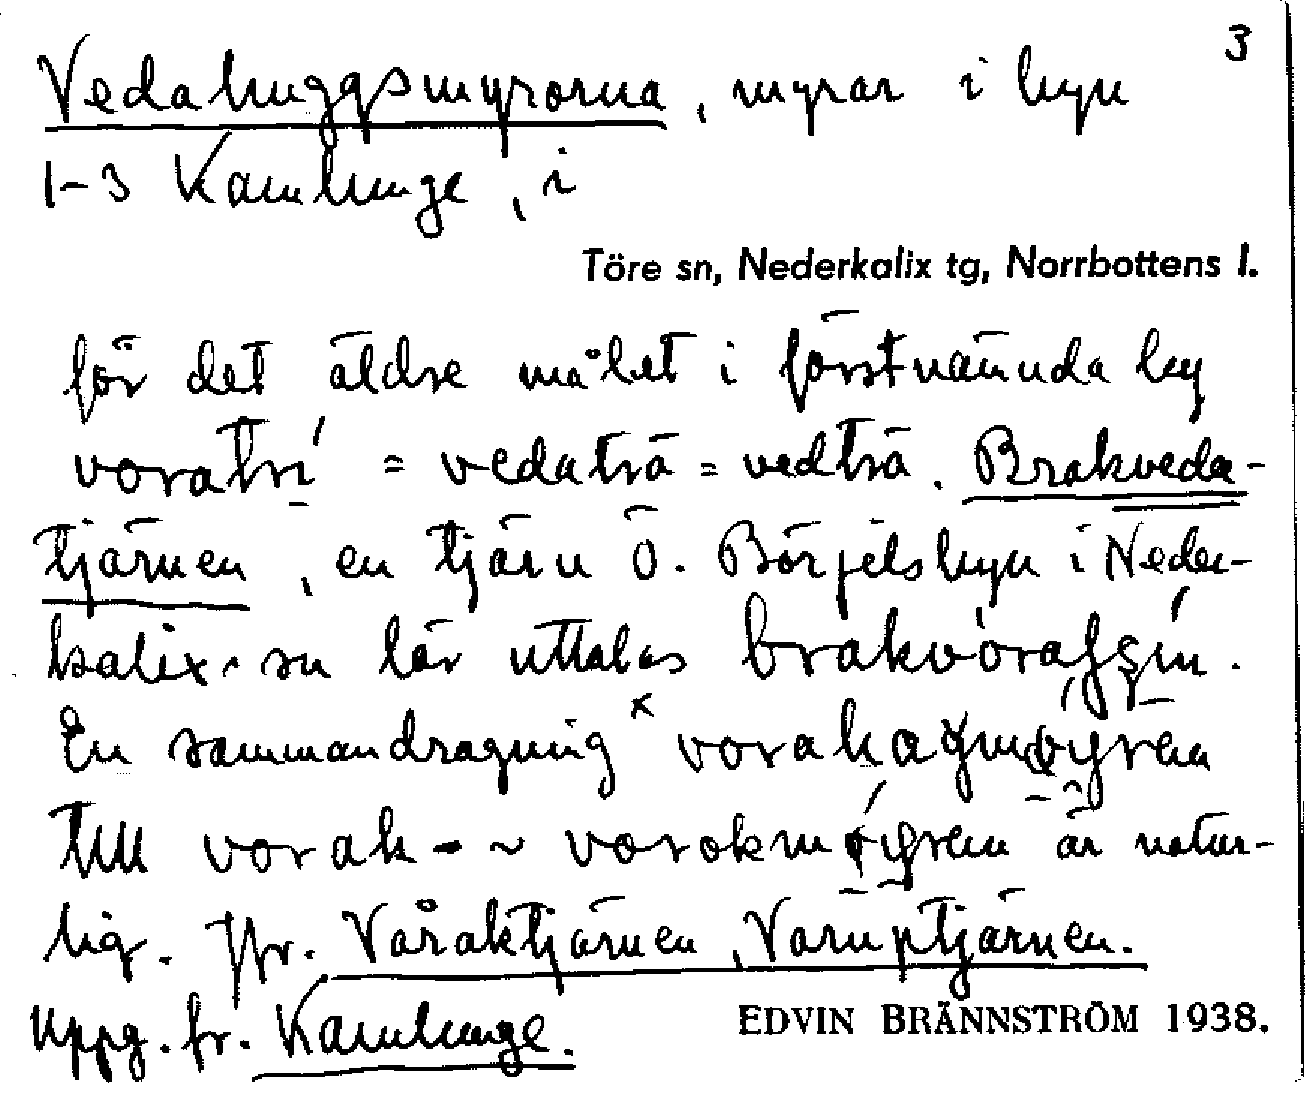 3
Vedahuggsmyrorna, myrar i byn
1-3 Kamlunge, i
Töre sn, Nederkalix tg, Norrbottens l.
för det äldre målet i förstnämnda by
voratrí = vedaträ = vedträ. Brakveda-
tjärnen, en tjärn Ö. Börjelsbyn i Neder-
kalix sn lär uttalas
En sammandragning
till vorak- ~ är natur-
lig. Jfr. Våraktjärnen, Varuptjärnen.
Uppg. fr. Kamlunge.
EDVIN BRÄNNSTRÖM 1938.